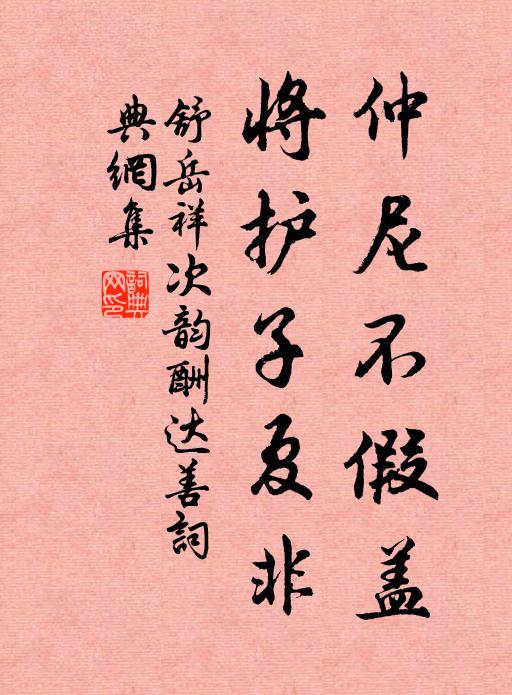 仲尼不假盖
将护子夏非
舒岳祥次韵酬达善詞
典網集
詞典网印